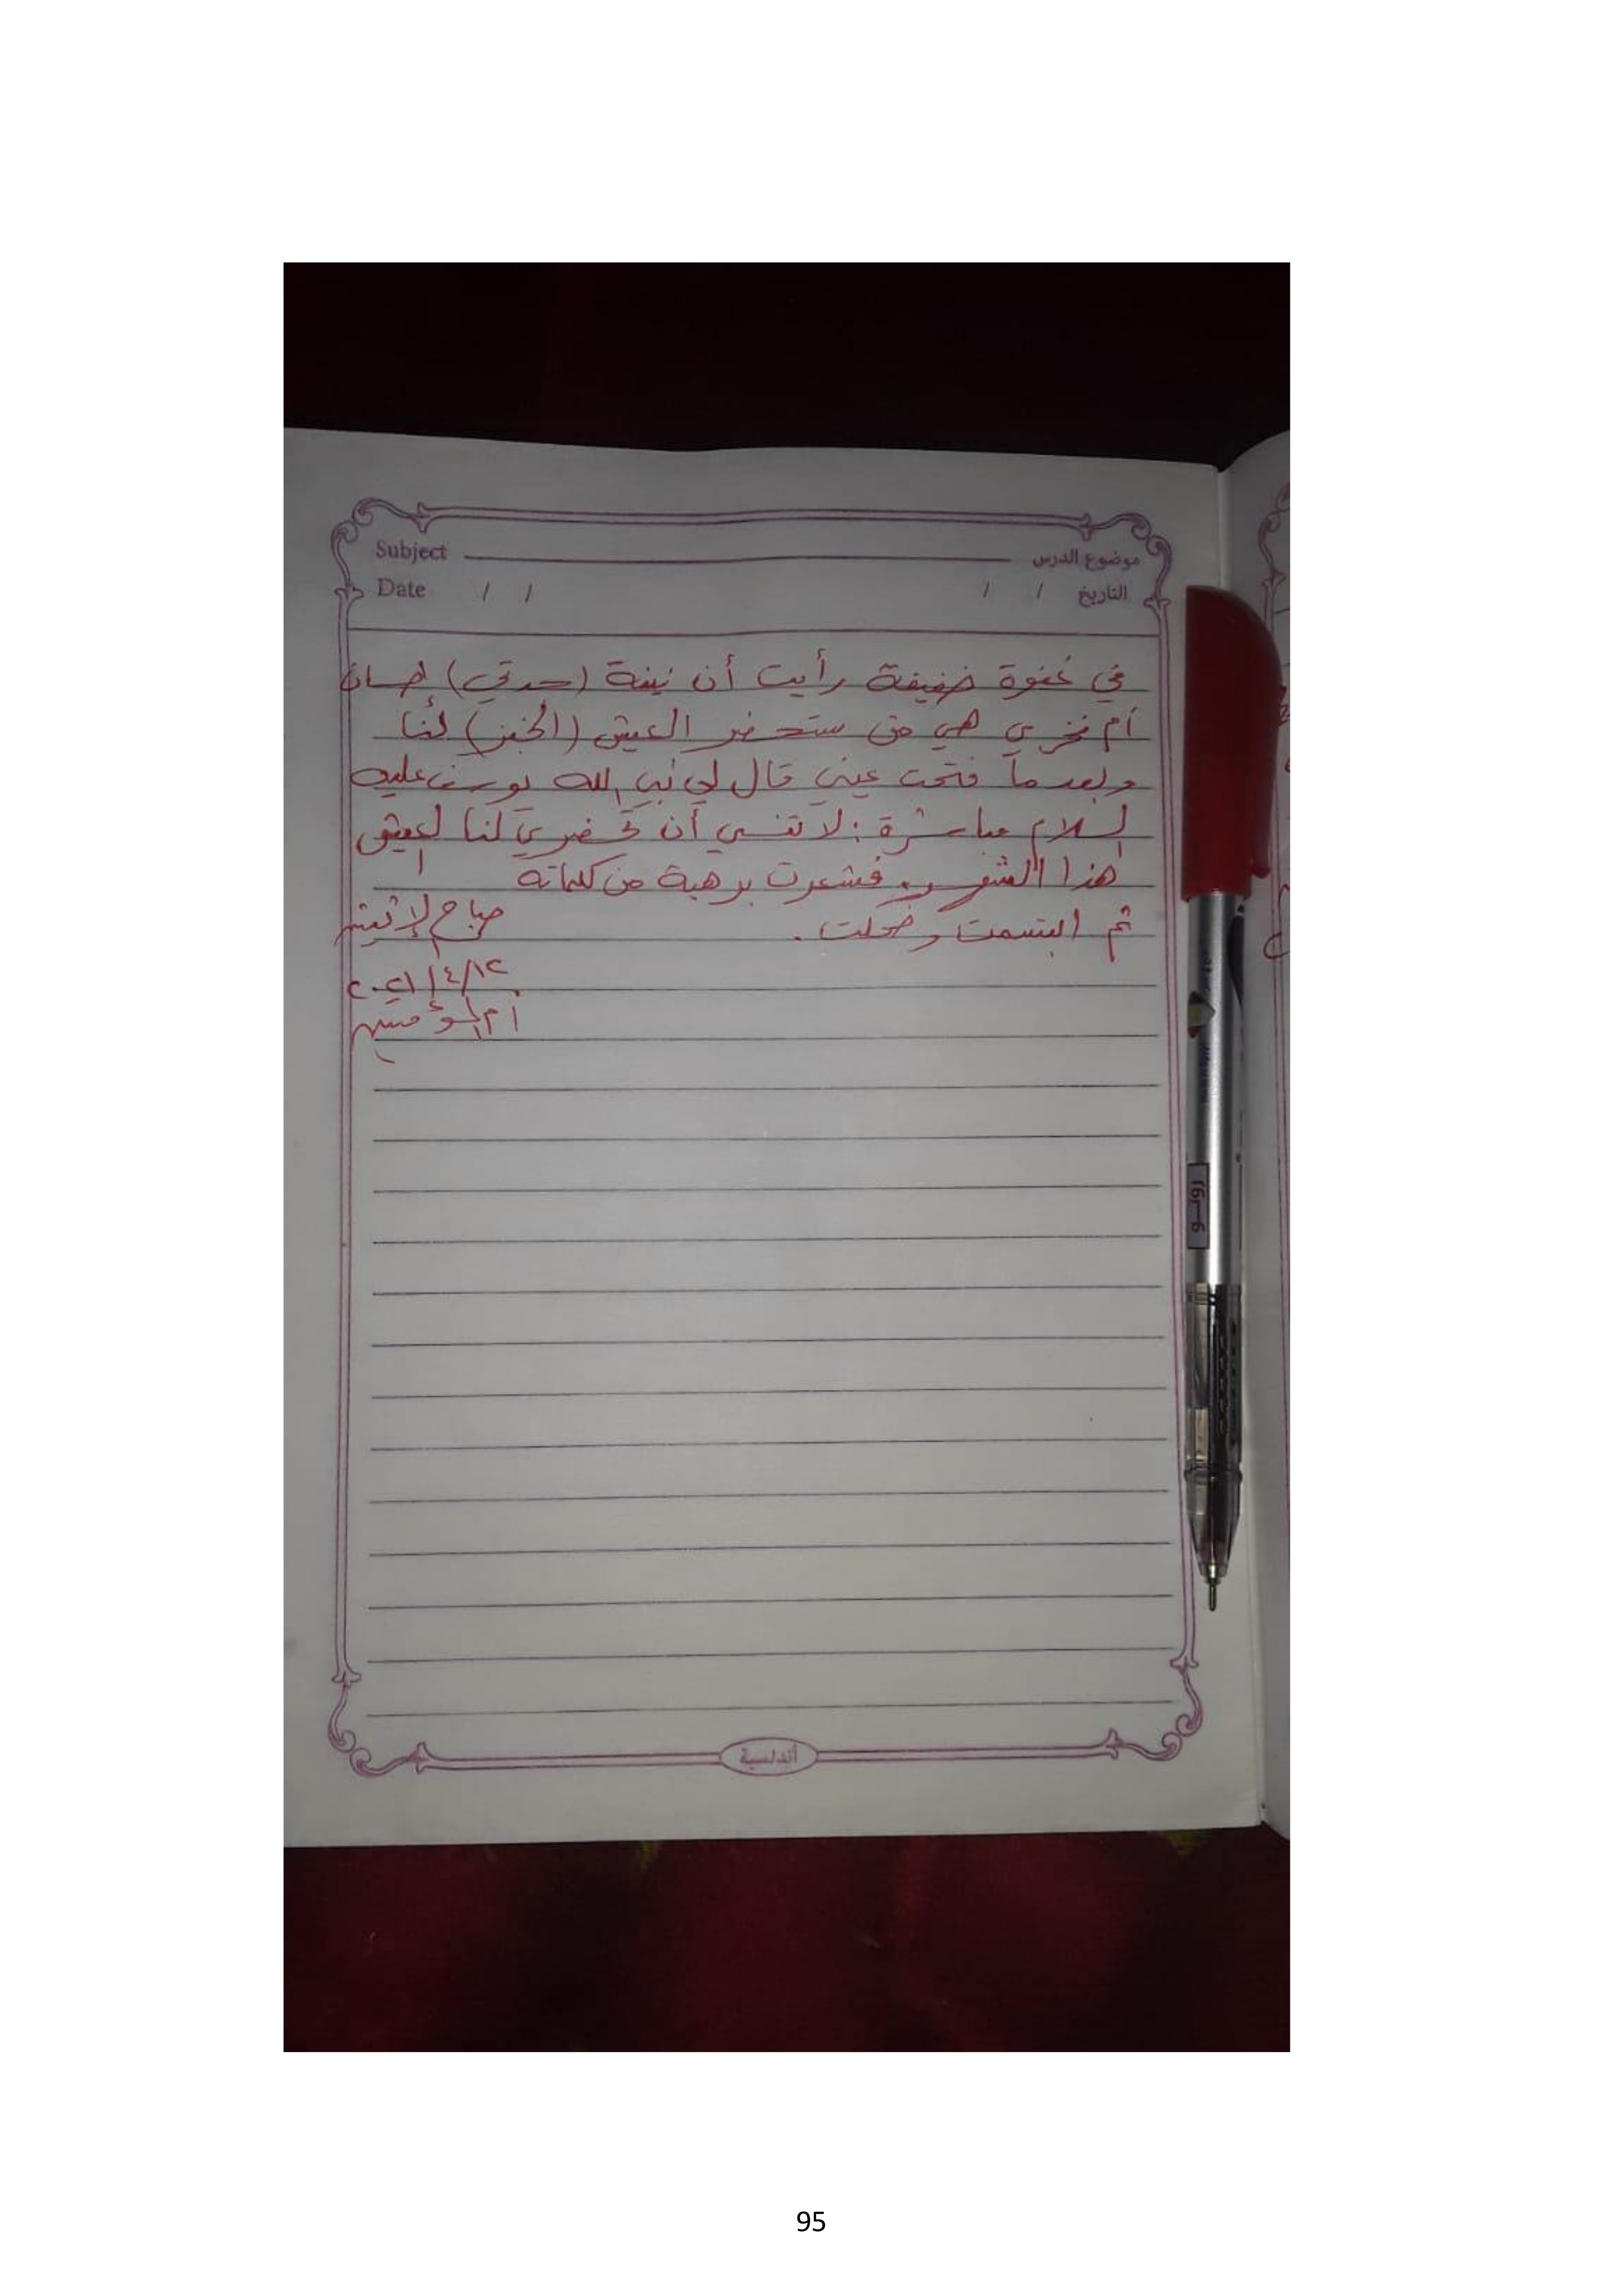 Subject موضوع الدرس
Date / / / / التاريخ
في غفوة خفيفة رأيت أن نينة (جدتي) إحسان
أم فخري هي من ستحضر العيش (الخبز) لنا
وبعدما فتحت عيني قال لي نبي الله يوسف عليه
السلام مباشرة: لا تنسي أن تحضري لنا العيش
هذا الشهر. فشعرت برهبة من كلماته
ثم ابتسمت وضحكت.
صباح الإثنين
٢٠٢١/٤/١٢
أم المؤمنين
رونـو
أندلسية
95